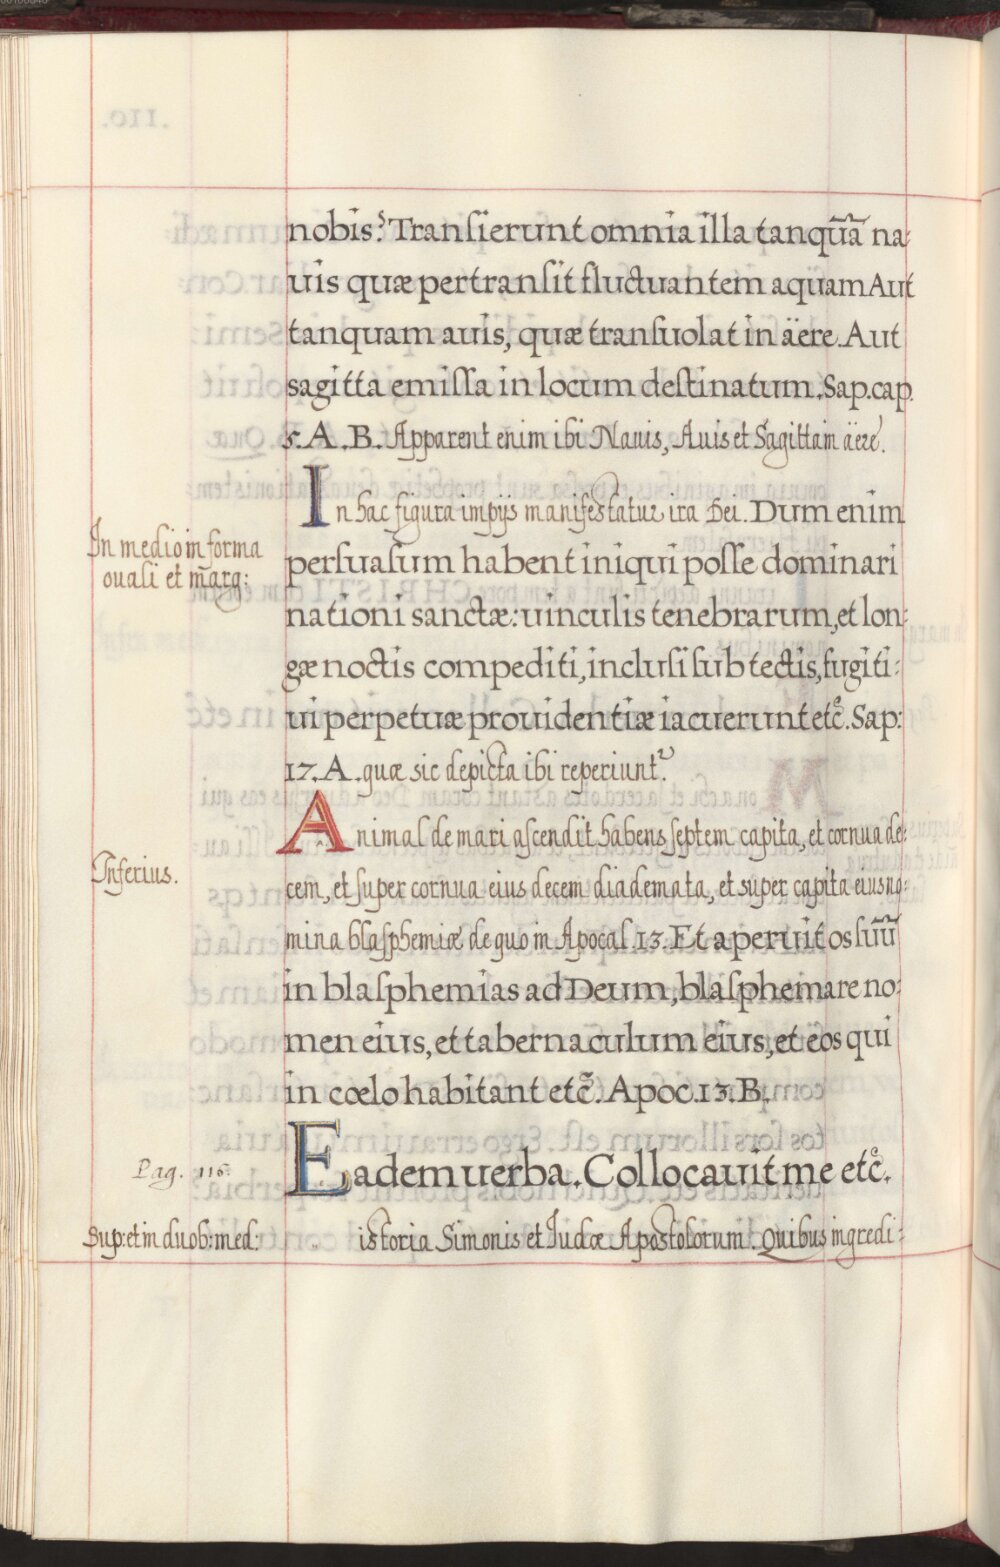 nobis? Transierunt omnia illa tanquã na:
uis quæ pertransit fluctuantem aquam Aut
tanquam auis, quæ transuolat in äere. Aut
sagitta emissa in locum destinatum. Sap. cap.
5. A. B. Apparent enim ibi Nauis, Auis et Sagitta in äere.
In hac figura impijs manifestatur ira Dei. Dum enim
In medio in forma
ouali et marg:
persuasum habent iniqui posse dominari
nationi sanctæ: uinculis tenebrarum, et lon:
gæ noctis compediti, inclusi sub tectis, fugiti:
ui perpetuæ prouidentiæ iacuerunt etc. Sap:
17. A. quæ sic depicta ibi reperiunt.ʳ
Animal de mari ascendit habens septem capita, et cornua de:
Inferius.
cem, et super cornua eius decem diademata, et super capita eius no:
mina blasphemiæ de quo in Apocal. 13. Et aperuit os suũ
in blasphemias ad Deum, blasphemare no:
men eius, et tabernaculum eius, et eos qui
in cœlo habitant etc̃. Apoc. 13. B.
Eadem uerba. Collocauit me etc̃.
Pag. 116.
Sup: et in duob: med:
istoria Simonis et Iudæ Apostolorum. Quibus ingredi: